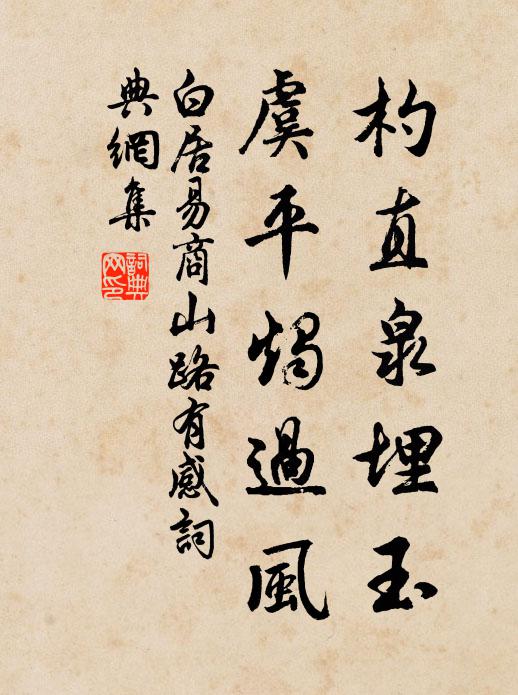 杓直泉埋玉
虞平燭過風
白居易商山路有感詞
典網集
詞典网印